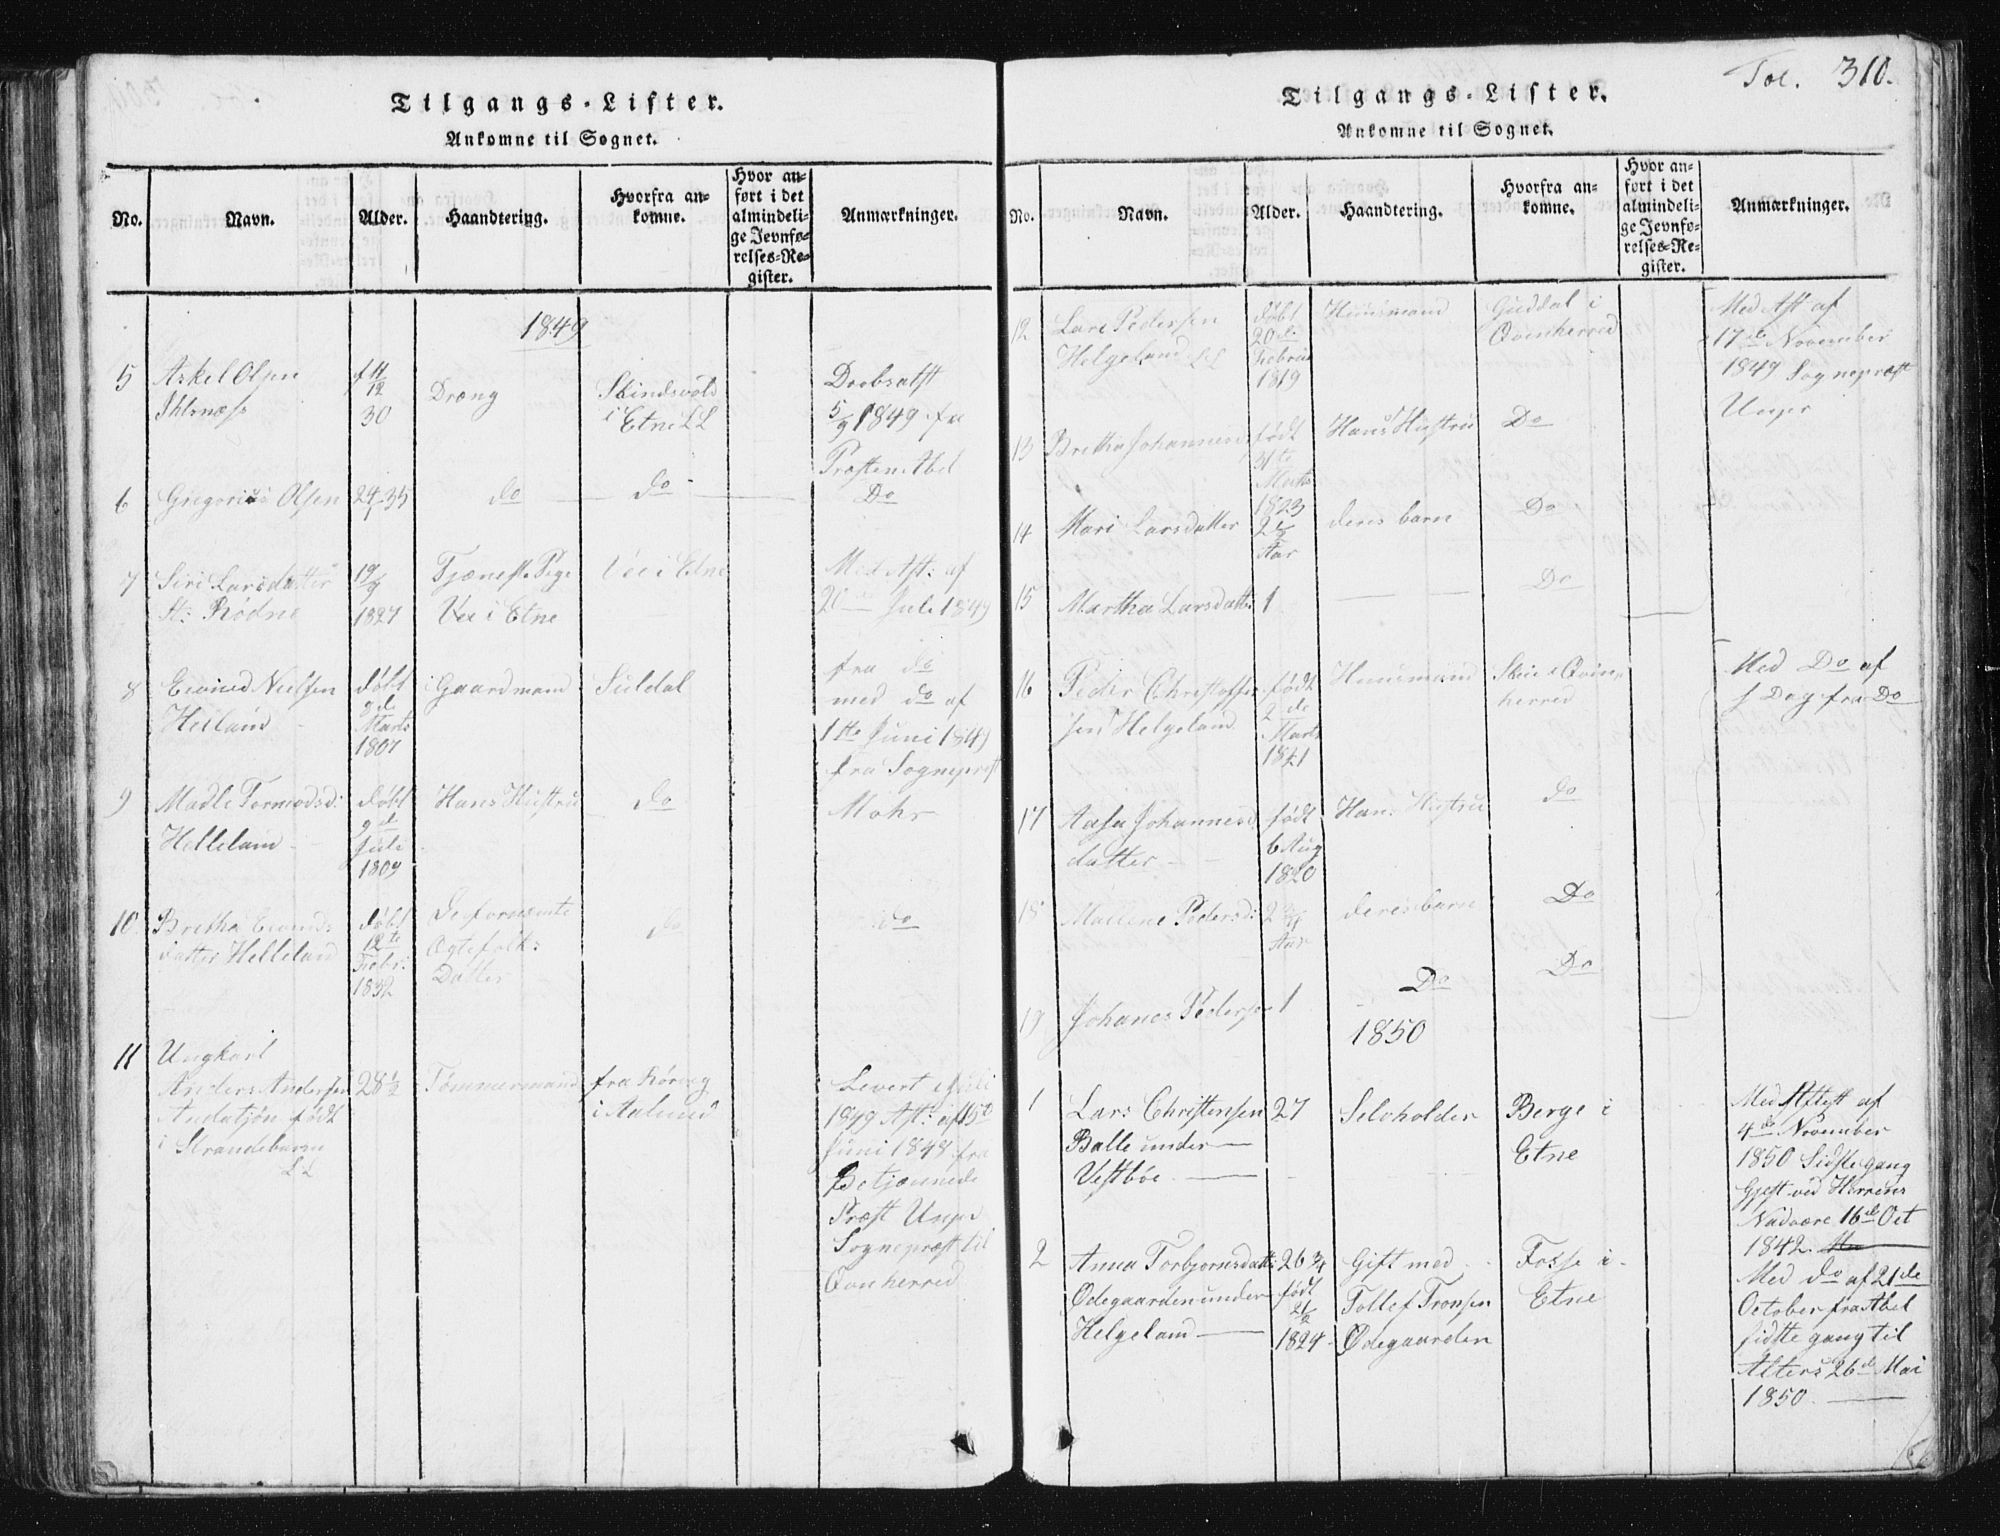 Tilgangs-Lister.
Ankomne til Sognet.
No.
Navn.
Alder.
Haandtering.
Hvorfra an-
komne.
Hvor an-
ført i det
almindeli-
ge Jevnfø-
relses-Re-
gister.
Anmærkninger.
1849
5
Askel Olsen
f 11/12
30
Dræng
Skindsvold
i Etne LL
Daabsatst
5/9 1849 fra
Præsten Abel
6
Gregorius Olsen
24/1 35
do
do
Do
7
Siri Larsdatter
St: Rødne
19/9
1827
Tjæneste Pige
Vee i Etne
Vee i Etne
Med Att: af
20de Juli 1849
8
Eivind Nielsen
Helland
døbt
9de
Marts
1807
Gaardmand
Suldal
fra do
med do af
1ste Juni 1849
fra Sognepræst
Mohr
9
Madle Tormodsd:
Helleland
døbt
9de
Juli
1809
Hans Hustru
do
10
Bretha Eivinds
datter Helleland
døbt
12te
Febr:
1832
De fornævnte
Ægtefolks
Datter
do
do
11
Ungkarl
Anders Andersen
født
i Strandebarm
LL
28 1/2
Tømmermand
fra
i
Levert i Juli
1849 Att: af 15de
Juni 1848 fra
Betjenende
Præst Unger
Sognepræst til
Qvinherred
Tilgangs-Lister.
Fol. 310.
Ankomne til Sognet.
No.
Navn.
Alder.
Haandtering.
Hvorfra an-
komne.
Hvor an-
ført i det
almindeli-
ge Jevnfø-
relses-Re-
gister.
Anmærkninger.
12
Lars Pedersen
Helgeland LL
døbt
20de
Februar
1819
Huusmand
Guddal i
Qvinherred
Med Att af
17de November
1849 Sognepræst
Unger
13
Bretha Johannesd:
født
31te
Marts
1823
Hans Hustru
Do
14
Mari Larsdatter
2 1/2
Aar
deres barn
Do
15
Martha Larsdatter
1
Do
16
Peder Christoffer
sen Helgeland
født
2de
Marts
1821
Huusmand
i Qvin
herred
Med Do af
s Dag fra Do
17
Aasa Johannes
datter
født
6 Aug
1820
Hans Hustru
do
18
Mallene Pedersd:
2 3/4
Aar
deres barn
Do
19
Johanes Pedersen
1
Do
Do
1850
1
Lars Christensen
Balle under
Vestbøe
27
Selvholder
Berge i
Etne
Med Attest af
4de November
1850 Sidste gang
Gjest ved Herrens
Nadvere 16de Oct
1842.
2
Anna Torbjørnsdatter
Ødegaarden under
Helgeland
26 3/4
født
21/2
1824
Gift med
Tollef Tronsen
Ødegaarden
Fosse i
Etne
Med do af 21de
October fra Abel
sidste gang til
Alters 26de Mai
1850